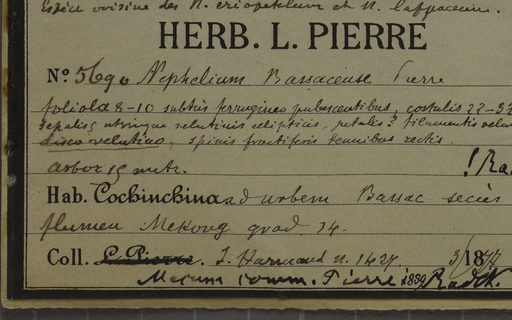 Espèce voisine des N. eriopetalum et N. lappaceum.
HERB. L. PIERRE
No. 5690 Nephelium Bassacense Pierre
foliola 8-10 subtus ferrugineo pubescentibus, costulis 22-32
sepalis 5 utrinque velutinis ellipticis, petalis ? filamentis
disco velutino, spinis fructiferis tenuibus rectis
arbor 15 metr. ! Ra
Hab. Cochinchina ad urbem Bassac secus
flumen Mekong grad. 14.
Coll. L. Pierre. J. Harmand n. 1427. 3/1877
Mecum comm. Pierre 1889 Radlk.